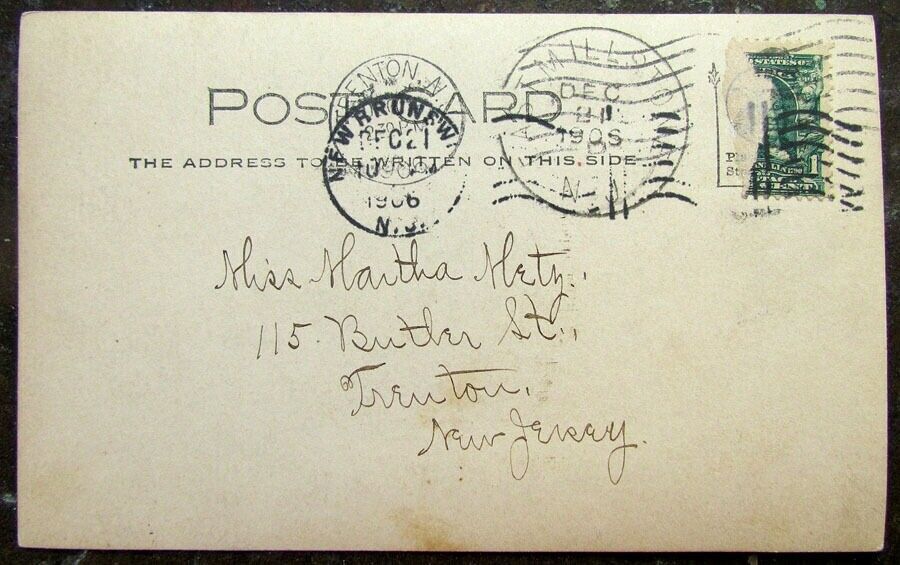 POST CARD
THE ADDRESS TO BE WRITTEN ON THIS SIDE
TRENTON, N.
NEW BRUNSW
DEC 21
1906
N.J.
MILLSTO
DEC
21
1906
N.J.
STATES OF
1
Miss Martha Metz.
115 Butler St.,
Trenton,
New Jersey.